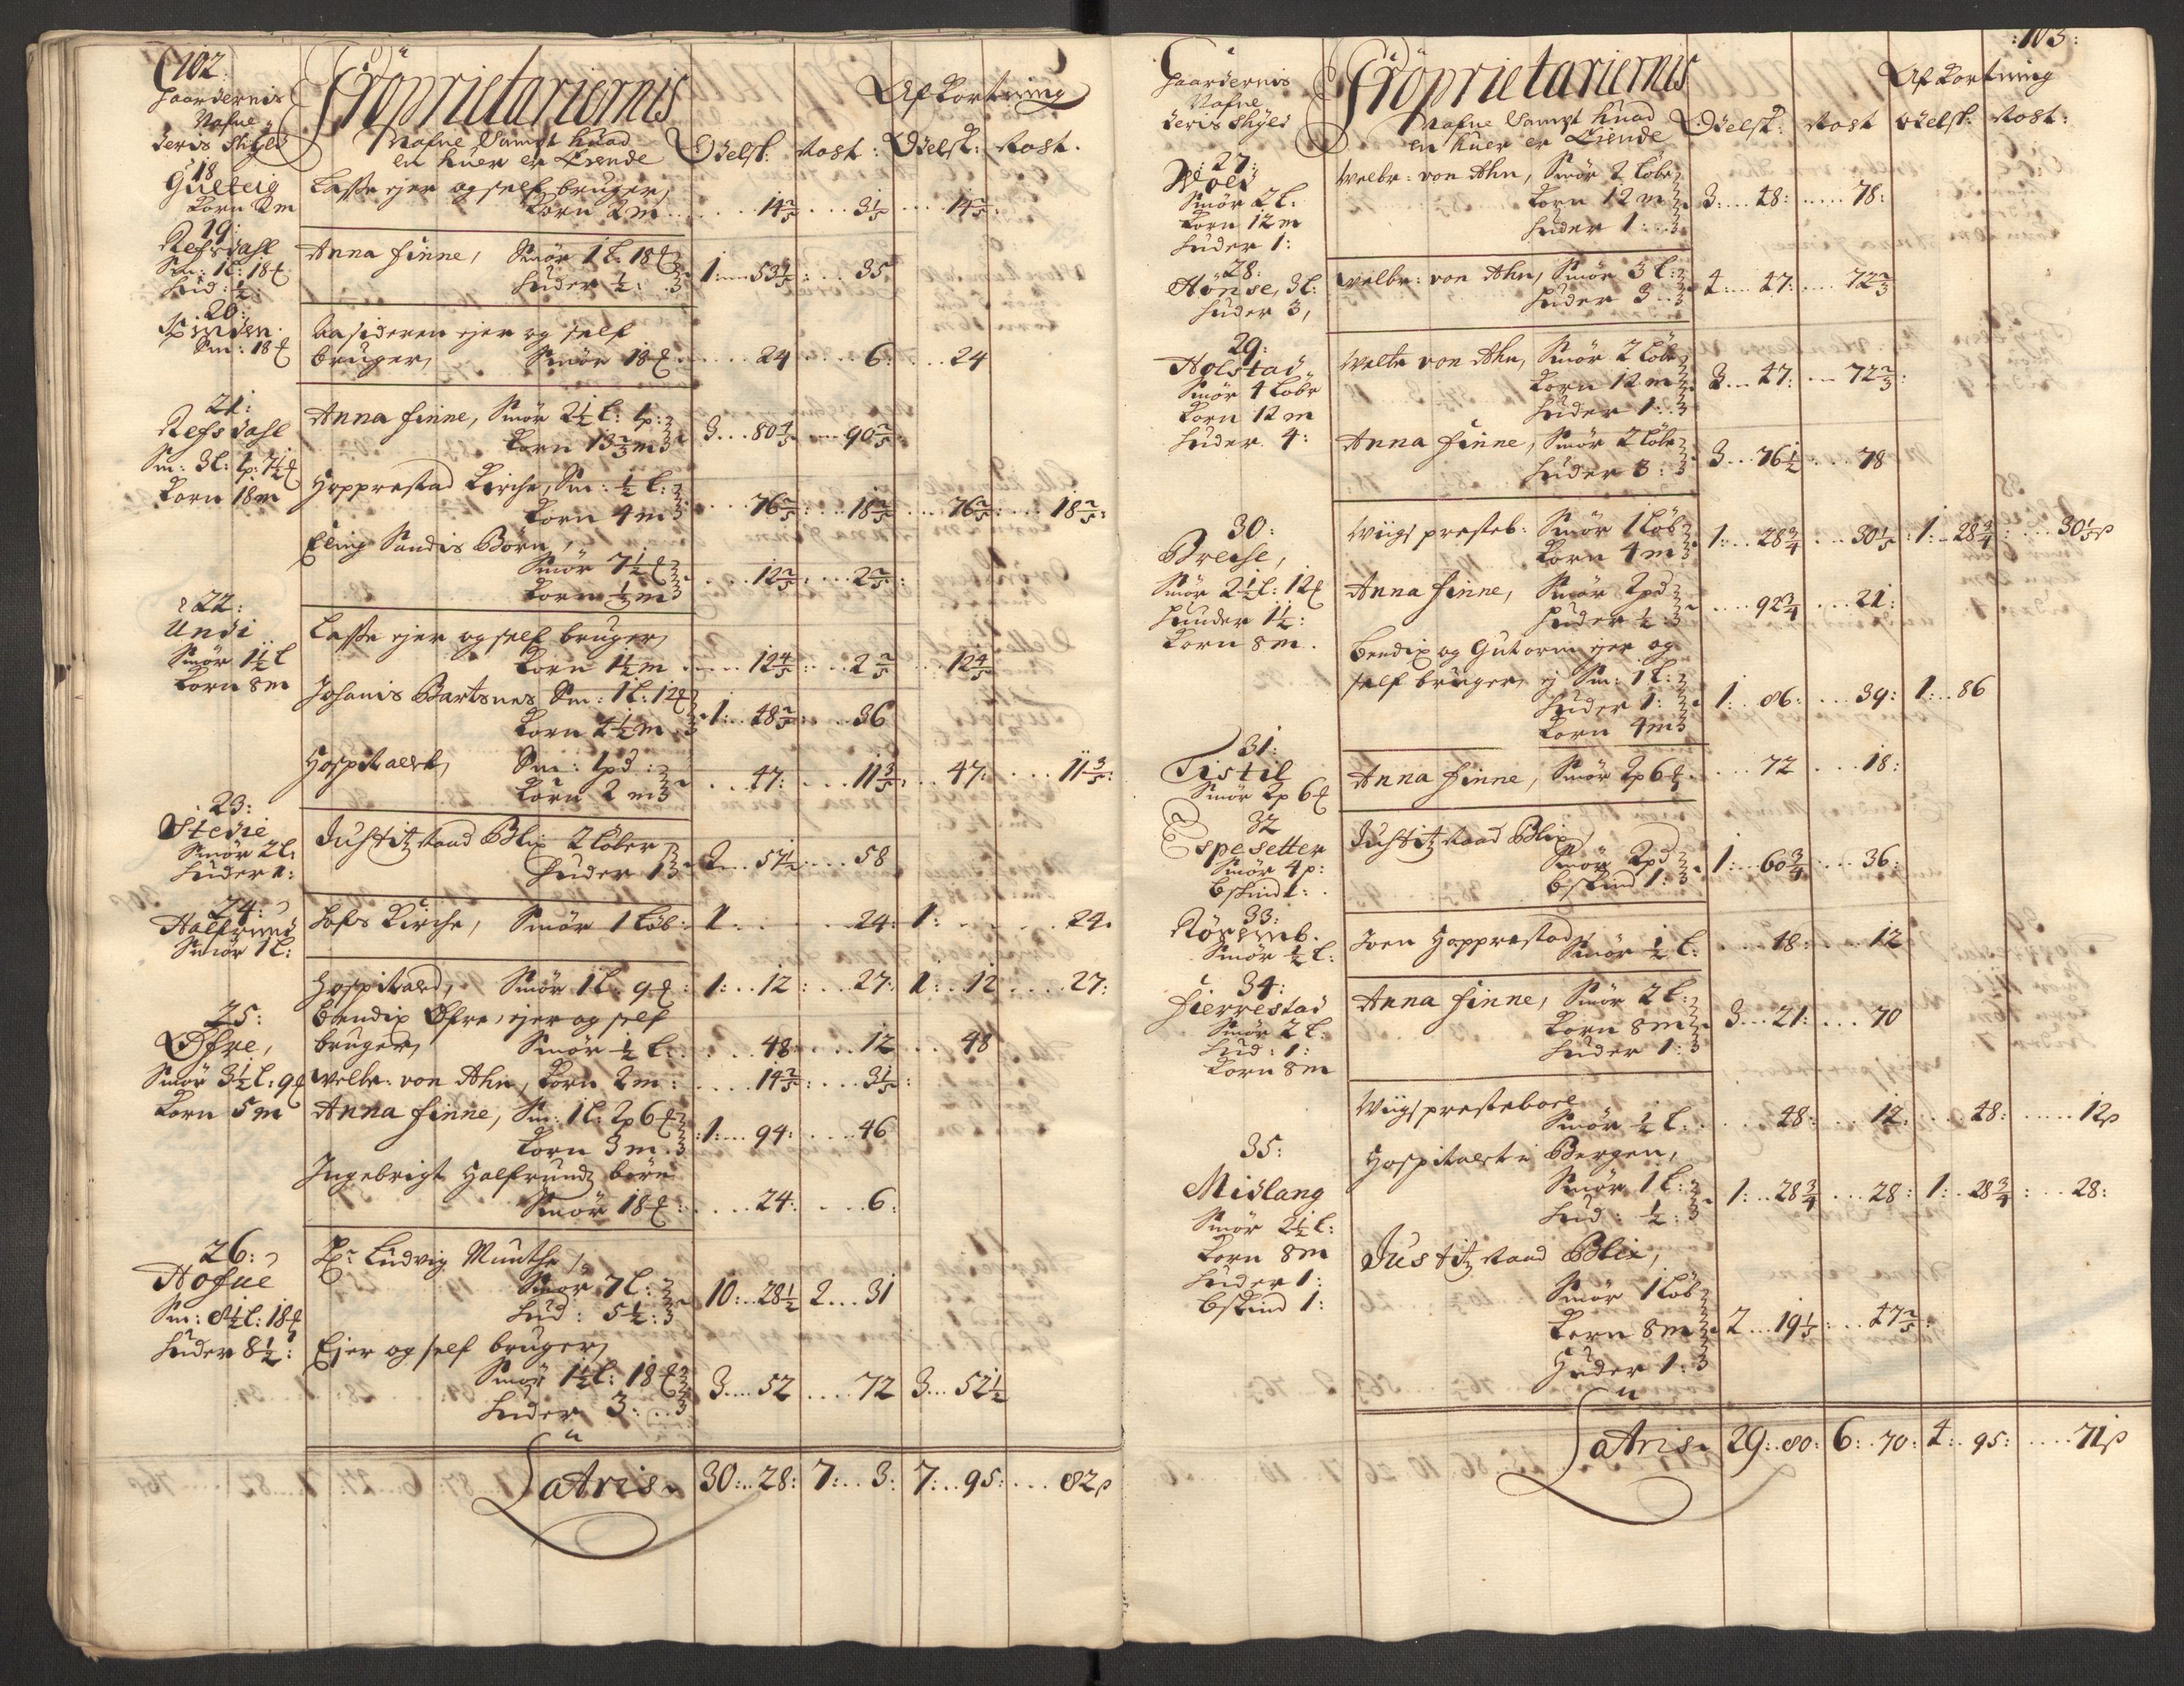 102.
Gaardernis
Nafne
deris Skyld
Proprietariernis
Nafne Sampt huad
en huer er Eiende
Afkortning
Odelsk: Rost: Odelsk: Rost.
18
Gulteig
Korn 2m
Lasse ejer og self bruger,
Korn 2m .... 14 2/5 ... 3 1/5 ... 14 2/5:
19:
Refsdahl
Sm: 1l: 18#
Hud: 1/2:
Anna finne, Smör 1l: 18#
Huder 1/2: 1: ... 53 1/2: ... 35
20:
Sm: 18#
ejer og self
bruger, Smör 18# .... 24 ... 6: ... 24
21:
Refsdahl
Sm: 3l: 1p: 7 1/2#
Korn 18m
Anna finne, Smör 2 1/2 l: 1p:
Korn 13 2/3 m 3 ... 80 4/5 ... 90 2/5
Hopprestad Kirche, Sm: 1/2 l:
Korn 4m ... 76 2/5: ... 18 2/5 ... 76 2/5: ... 18 2/5:
Elling Sandis Born,
Smör 7 1/2#
Korn 1/3 m ... 12 2/5: ... 2 2/5:
22:
Undi
Smör 1 1/2 l
Korn 8m
Lasse ejer og self bruger,
Korn 1 1/2 m .... 12 4/5: ... 2 2/5 ... 12 4/5
Johanis Bartsnes Sm: 1l: 12#
Korn 4 1/2 m 1: 48 2/5: ... 36
Hospitalet, Sm: 1pd:
Korn 2 m ... 47: ... 11 3/5: ... 47: ... 11 3/5:
23:
Stedie
Smör 2l:
Huder 1:
Justitz Raad Blix 2 löber
Huder 1 2 ... 57 1/2: ... 58
24:
Halfrund
Smör 1l:
Hofs Kirche, Smör 1 Löb: 1 .... 24: 1: .... 24.
Hospitaled, Smör 1l: 9#: 1: .. 12: .. 27: 1: .. 12 ... 27:
25:
Øfre,
Smör 3 1/2 l: 9#
Korn 5m
Bendix Øfre, ejer og self
bruger, Smör 1/2 l: ... 48: ... 12 ... 48
welbr: von Ahn, Korn 2m: .... 14 2/5: ... 3 1/5:
Anna finne, Sm: 1l: 2p 6#
Korn 3m. 1: ... 94: ... 46
Ingebrigt Halfrunds börn
Smör 18#: .... 24: ... 6:
26:
Hofue
Sm: 8 1/2 l: 18#
Huder 8 1/2:
Hr Ludvig Munthe,
Smör 7l:
Hud: 5 1/2: 10: .. 28 1/2 2 ... 31
Ejer og self bruger,
Smör 1 1/2 l: 18#
Huder 3: 3 ... 52 .... 72 3 ... 52 1/2
Latris 30: .. 28: 7: .. 3: 7: .. 95: ... 82ß
:103:
Gaardernis
Nafne
deris Skyld
Proprietariernis
Nafne Sampt huad
en huer er Eiende
Afkortning
Odelsk: Rost Odelsk: Rost:
27:
Smör 2l:
Korn 12m
Huder 1:
Welbr: von Ahn, Smör 2 Löber
Korn 12 m
Huder 1: 3: ... 48: .... 78:
28:
Hönse, 3l:
Huder 3,
welbr: von Ahn, Smör 3l:
Huder 3 4 ... 47: .... 72 2/3
29:
Holstad
Smör 4 Löbr
Korn 12m
Huder. 4:
Welbr von Ahn, Smör 2 Löbr
Korn 12 m
Huder 1: 3 ... 47: ... 72 2/3:
Anna finne, Smör 2 Löbr
Huder 3: 3 ... 76 1/2: ... 78
30:
Breche,
Smör 2 1/2 l: 12#
Huuder 1 1/2:
Korn 8m.
Wigs presteb: Smör 1 Löb
Korn 4m 1: .. 28 3/4 ... 30 1/5: 1: .. 28 3/4: ... 30 1/5ß
Anna finne, Smör 2pd
Huder 1/2: .... 92 3/4 ... 21:
Bendix og Gutorm ejer og
self bruger, Sm: 1l:
Huder 1:
Korn 4m 1: .. 86: ... 39: 1: .. 86
31:
Tistil
Smör 2p 6#
Anna finne, Smör 2p 6# .... 72 ... 18:
32
Espesetter
Smör 4p:
Bskind 1:
Justitz Raad Blix,
Smör 2pd
Bskind 1: 1: .. 60 3/4: ... 36:
33:
Smör 1/2 l:
Joen Hopprestad,
Smör 1/2 l: .... 48: ... 12
34:
Hierrestad
Smör 2l:
Hud: 1:
Korn 8m
Anna finne, Smör 2l:
Korn 8m
Huder 1: 3 ... 21: ... 70
35:
Midlang
Smör 2 1/2 l:
Korn 8m
Huder 1:
Bskind 1:
Wigs presteboel
Smör 1/2 l: ... 48: ... 12: ... 48: .... 12ß
Hospitalet i Bergen,
Smör 1l:
Hud: 1/2: 1: .. 28 3/4 ... 28: 1: .. 28 3/4: ... 28:
Justitz Raad Blix,
Smör 1 Löb
Korn 8m
Huder 1: 2 ... 19 1/5: ... 47 2/5:
Latris 29: .. 80: 6: .. 70: 4: .. 95: .... 71ß